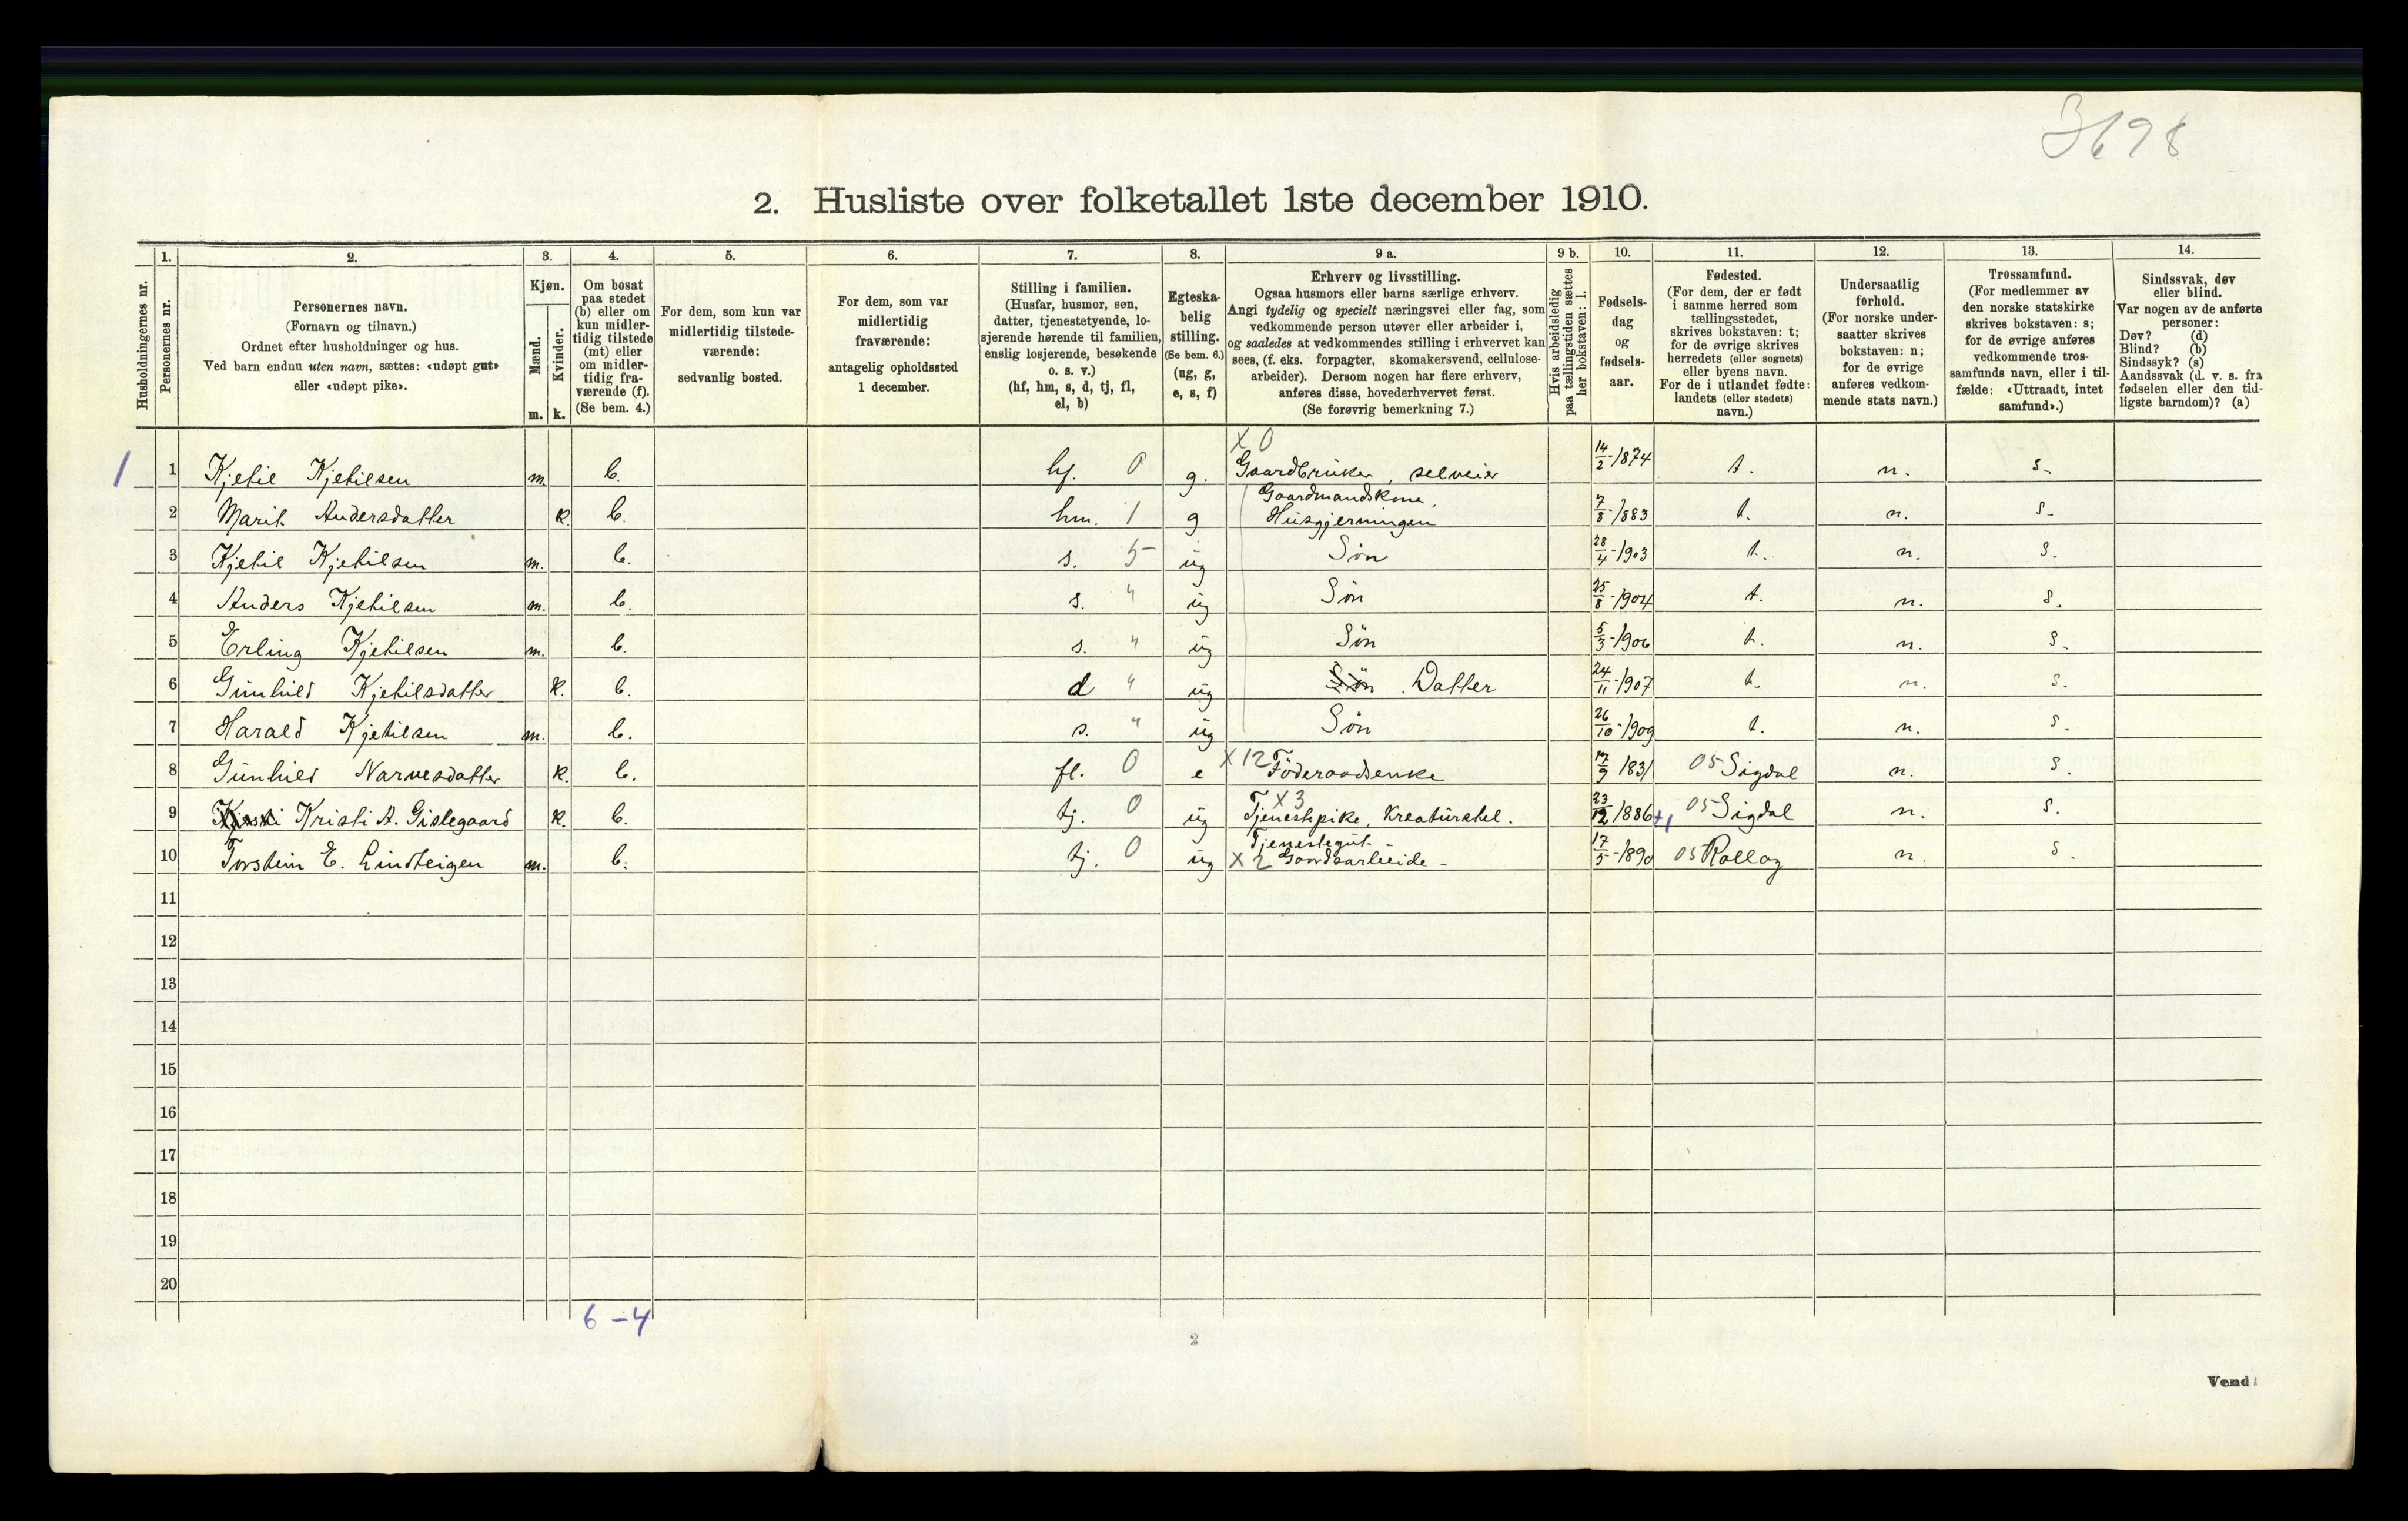 3698
2. Husliste over folketallet 1ste december 1910.
Husholdningernes nr.
1. Personernes nr.
2. Personernes navn.
(Fornavn og tilnavn.)
Ordnet efter husholdninger og hus.
Ved barn endnu uten navn, sættes: «udøpt gut»
eller «udøpt pike».
3. Kjøn.
Mænd. m.
Kvinder. k.
4. Om bosat
paa stedet
(b) eller om
kun midler-
tidig tilstede
(mt) eller
om midler-
tidig fra-
værende (f).
(Se bem. 4.)
5. For dem, som kun var
midlertidig tilstede-
værende:
sedvanlig bosted.
6. For dem, som var
midlertidig
fraværende:
antagelig opholdssted
1 december.
7. Stilling i familien.
(Husfar, husmor, søn,
datter, tjenestetyende, lo-
sjerende hørende til familien,
enslig losjerende, besøkende
o. s. v.)
(hf, hm, s, d, tj, fl,
el, b)
8. Egteska-
belig
stilling.
(Se bem. 6.)
(ug, g,
e, s, f)
9 a. Erhverv og livsstilling.
Ogsaa husmors eller barns særlige erhverv.
Angi tydelig og specielt næringsvei eller fag, som
vedkommende person utøver eller arbeider i,
og saaledes at vedkommendes stilling i erhvervet kan
sees, (f. eks. forpagter, skomakersvend, cellulose-
arbeider). Dersom nogen har flere erhverv,
anføres disse, hovederhvervet først.
(Se forøvrig bemerkning 7.)
9 b. Hvis arbeidsledig
paa tællingstiden sættes
her bokstaven: l.
10. Fødsels-
dag
og
fødsels-
aar.
11. Fødested.
(For dem, der er født
i samme herred som
tællingsstedet,
skrives bokstaven: t;
for de øvrige skrives
herredets (eller sognets)
eller byens navn.
For de i utlandet fødte:
landets (eller stedets)
navn.)
12. Undersaatlig
forhold.
(For norske under-
saatter skrives
bokstaven: n;
for de øvrige
anføres vedkom-
mende stats navn.)
13. Trossamfund.
(For medlemmer av
den norske statskirke
skrives bokstaven: s;
for de øvrige anføres
vedkommende tros-
samfunds navn, eller i til-
fælde: «Uttraadt, intet
samfund».)
14. Sindssvak, døv
eller blind.
Var nogen av de anførte
personer:
Døv? (d)
Blind? (b)
Sindssyk? (s)
Aandssvak (d. v. s. fra
fødselen eller den tid-
ligste barndom)? (a)
X 0
1 1 Kjetil Kjetilsen m. b. hf. 0 g. Gaardbruker, selveier 14/2-1874 t. n. s.
Gaardmandskone,
2 Marit Andersdatter k. b. hm. 1 g Husgjerningen 7/8-1883 t. n. s.
3 Kjetil Kjetilsen m. b. s. 5 ug Søn 28/4-1903 t. n. s.
4 Anders Kjetilsen m. b. s. " ug Søn 25/8-1904 t. n. s.
5 Erling Kjetilsen m. b. s. " ug Søn 5/3-1906 t. n. s.
6 Gunhild Kjetilsdatter k. b. d " ug Søn. Datter 24/11-1907 t. n. s.
7 Harald Kjetilsen m. b. s. " ug Søn 26/10-1909 t. n. s.
8 Gunhild Narvesdatter k. b. fl. 0 e X 12 Føderaadsenke 17/9 1831 05 Sigdal n. s.
X 3
9 Kristi A. Gislegaard k. b. tj. 0 ug Tjenestpike, Kreaturstel. 23/12 1886 +1 05 Sigdal n. s.
Tjenestegut.
10 Torstein E. Lindteigen m. b. tj. 0 ug X 2 Gaardsarbeide - 17/5-1890 05 Rollag n. s.
11
12
13
14
15
16
17
18
19
20
6-4
2
Vend!